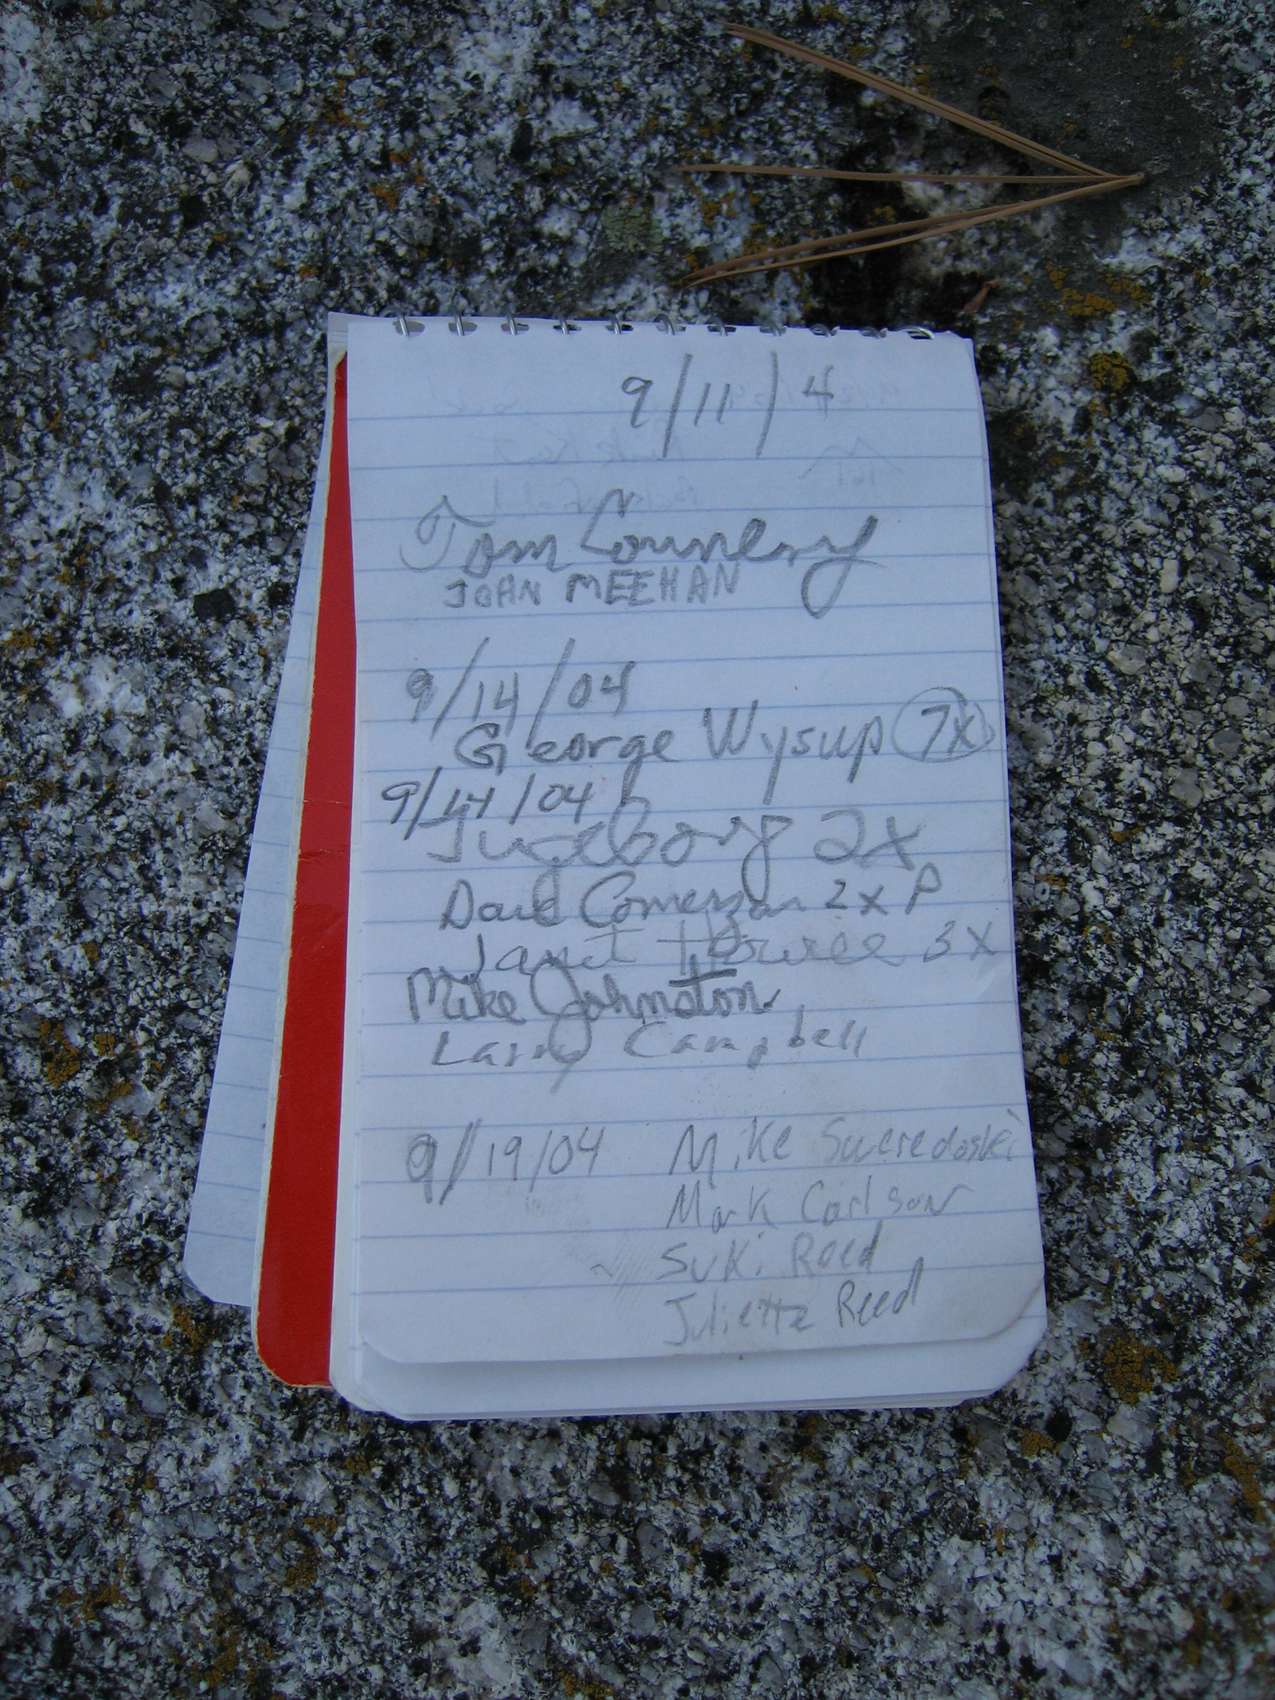 9/11/4
Tom Connery
JOAN MEEHAN
9/14/04
George Wysup 7X
9/14/04
Ingeborg 2X
Dave Comerzan 2X P
Janet Howell 3X
Mike Johnston
Larry Campbell
9/19/04 Mike Sweredoski
Mark Carlson
Suki Reed
Juliette Reed